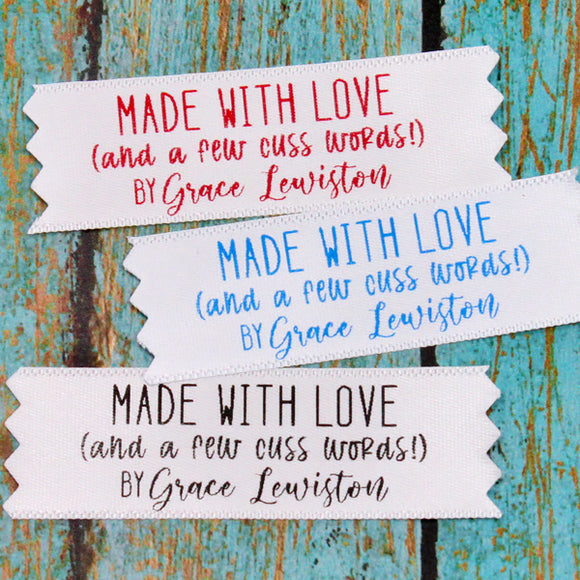 MADE WITH LOVE
(and a few cuss words!)
BY Grace Lewiston
MADE WITH LOVE
(and a few cuss words!)
BY Grace Lewiston
MADE WITH LOVE
(and a few cuss words!)
BY Grace Lewiston